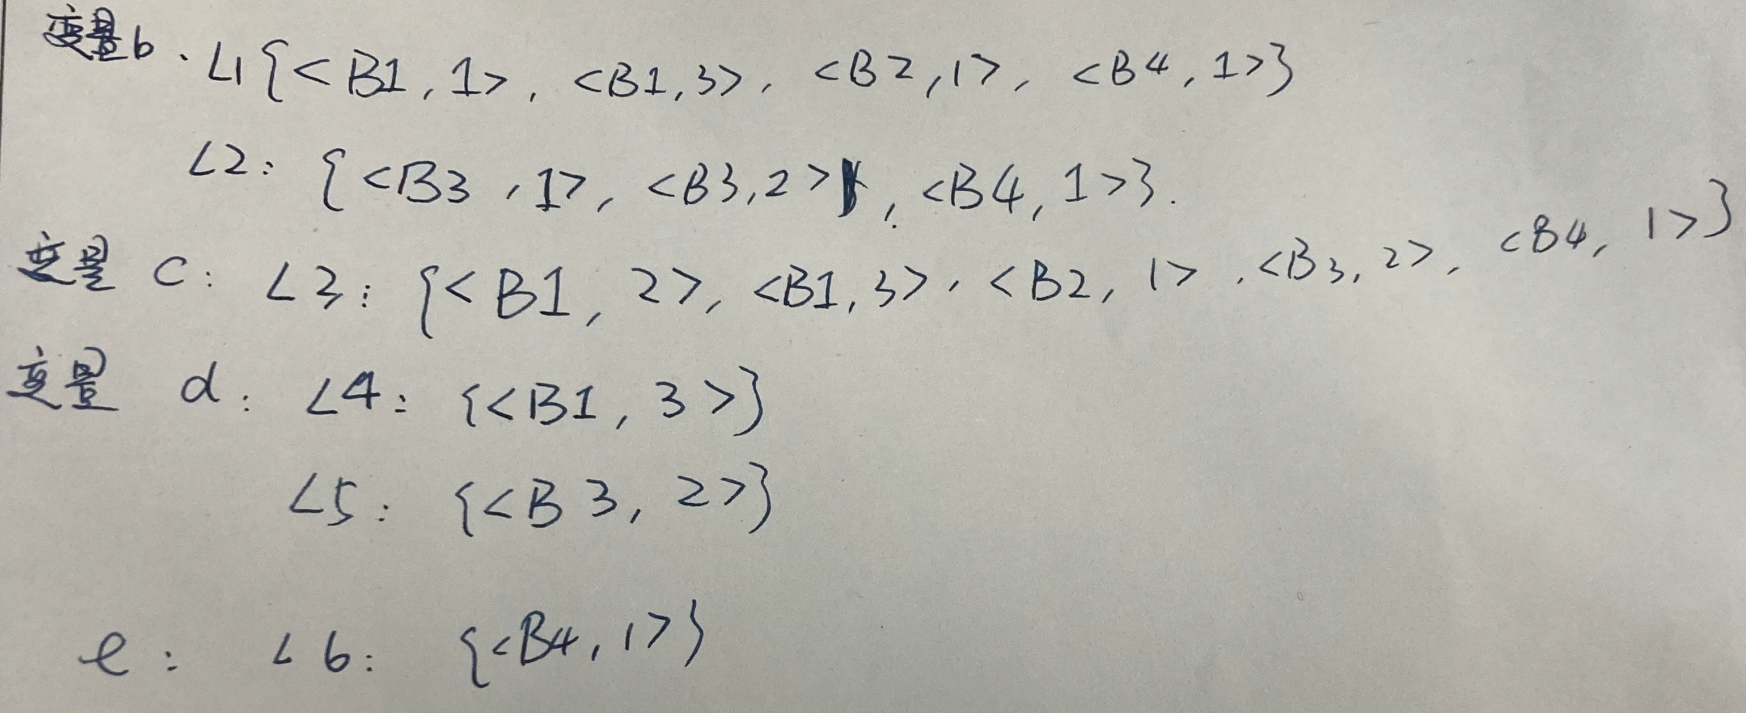 变量b. L1{<B1,1>, <B1,3>, <B2,1>, <B4,1>}
L2: {<B3,1>, <B3,2>, <B4,1>}.
变量 c: L3: {<B1,2>, <B1,3>, <B2,1>, <B3,2>, <B4,1>}
变量 d: L4: {<B1,3>}
L5: {<B3,2>}
e: L6: {<B4,1>}